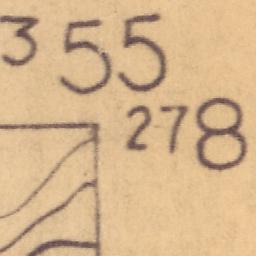 3 55
278